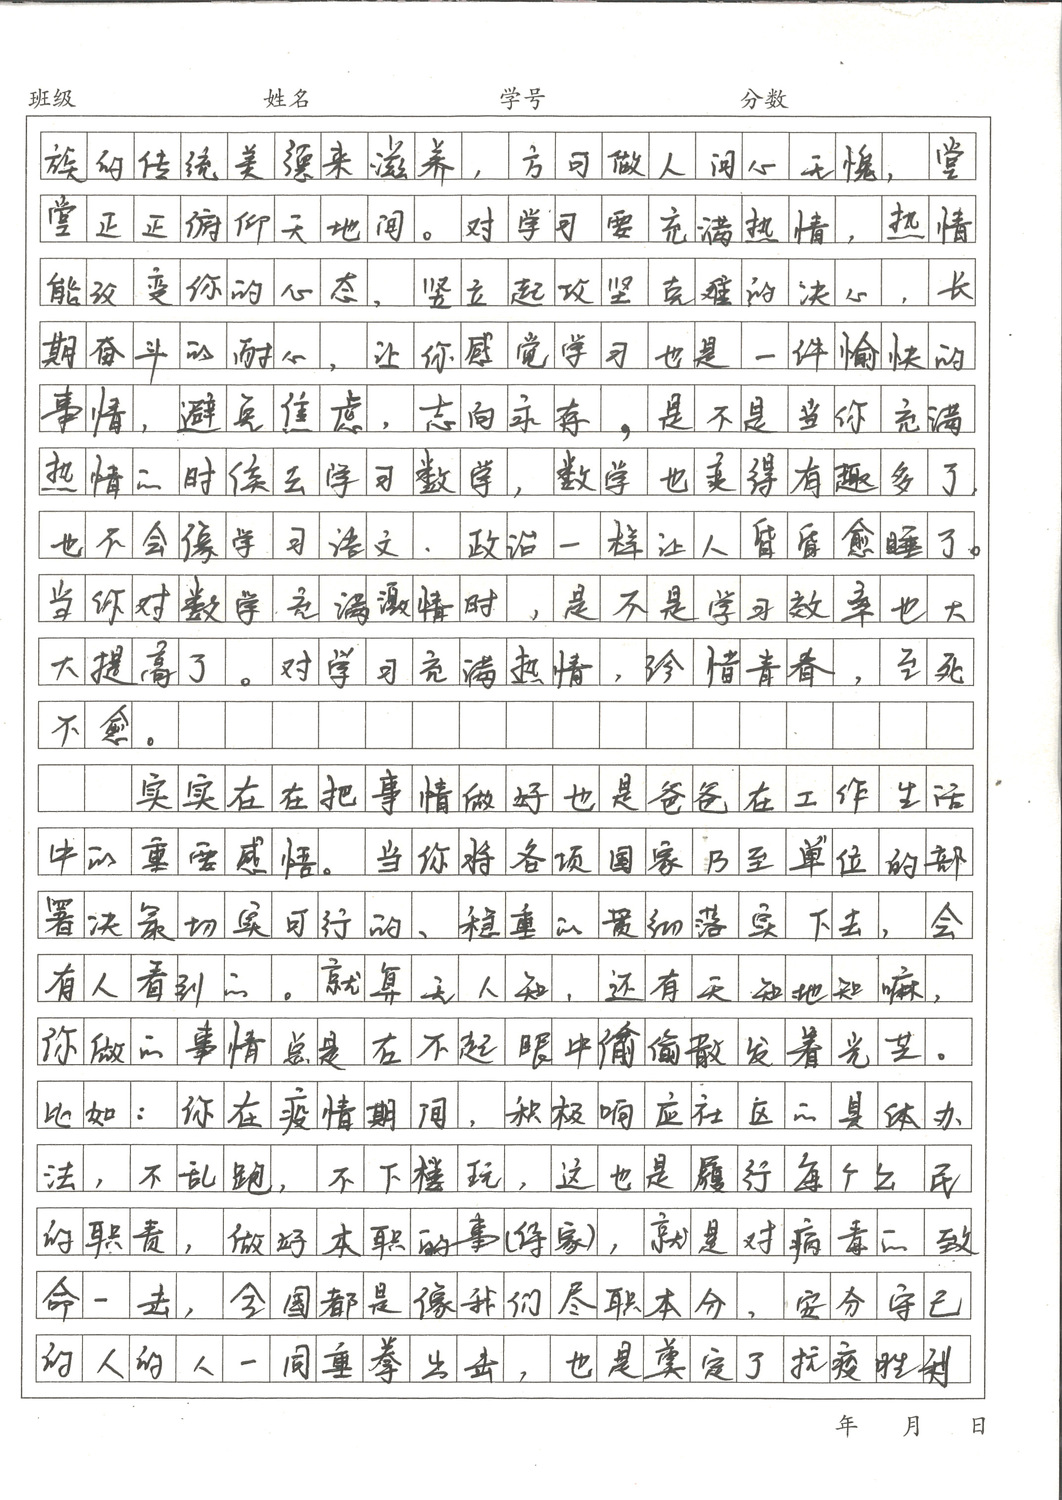 班级 姓名 学号 分数
族的传统美德来滋养，方可做人问心无愧，堂
堂正正俯仰天地间。对学习要充满热情，热情
能改变你的心态，竖立起攻坚克难的决心，长
期奋斗的耐心，让你感觉学习也是一件愉快的
事情，避免焦虑，志向永存，是不是当你充满
热情的时候去学习数学，数学也变得有趣多了，
也不会像学习语文、政治一样让人昏昏愈睡了。
当你对数学充满激情时，是不是学习效率也大
大提高了。对学习充满热情，珍惜青春，至死
不愈。
实实在在把事情做好也是爸爸在工作生活
中的重要感悟。当你将各项国家乃至单位的部
署决策切实可行的、稳重的贯彻落实下去，会
有人看到的。就算无人知，还有天知地知嘛，
你做的事情总是在不起眼中偷偷散发着光芒。
比如：你在疫情期间，积极响应社区的具体办
法，不乱跑，不下楼玩，这也是履行每个公民
的职责，做好本职的事(待家)，就是对病毒的致
命一击，全国都是像我们尽职本分，安分守己
的人的人一同重拳出击，也是奠定了抗疫胜利
年 月 日